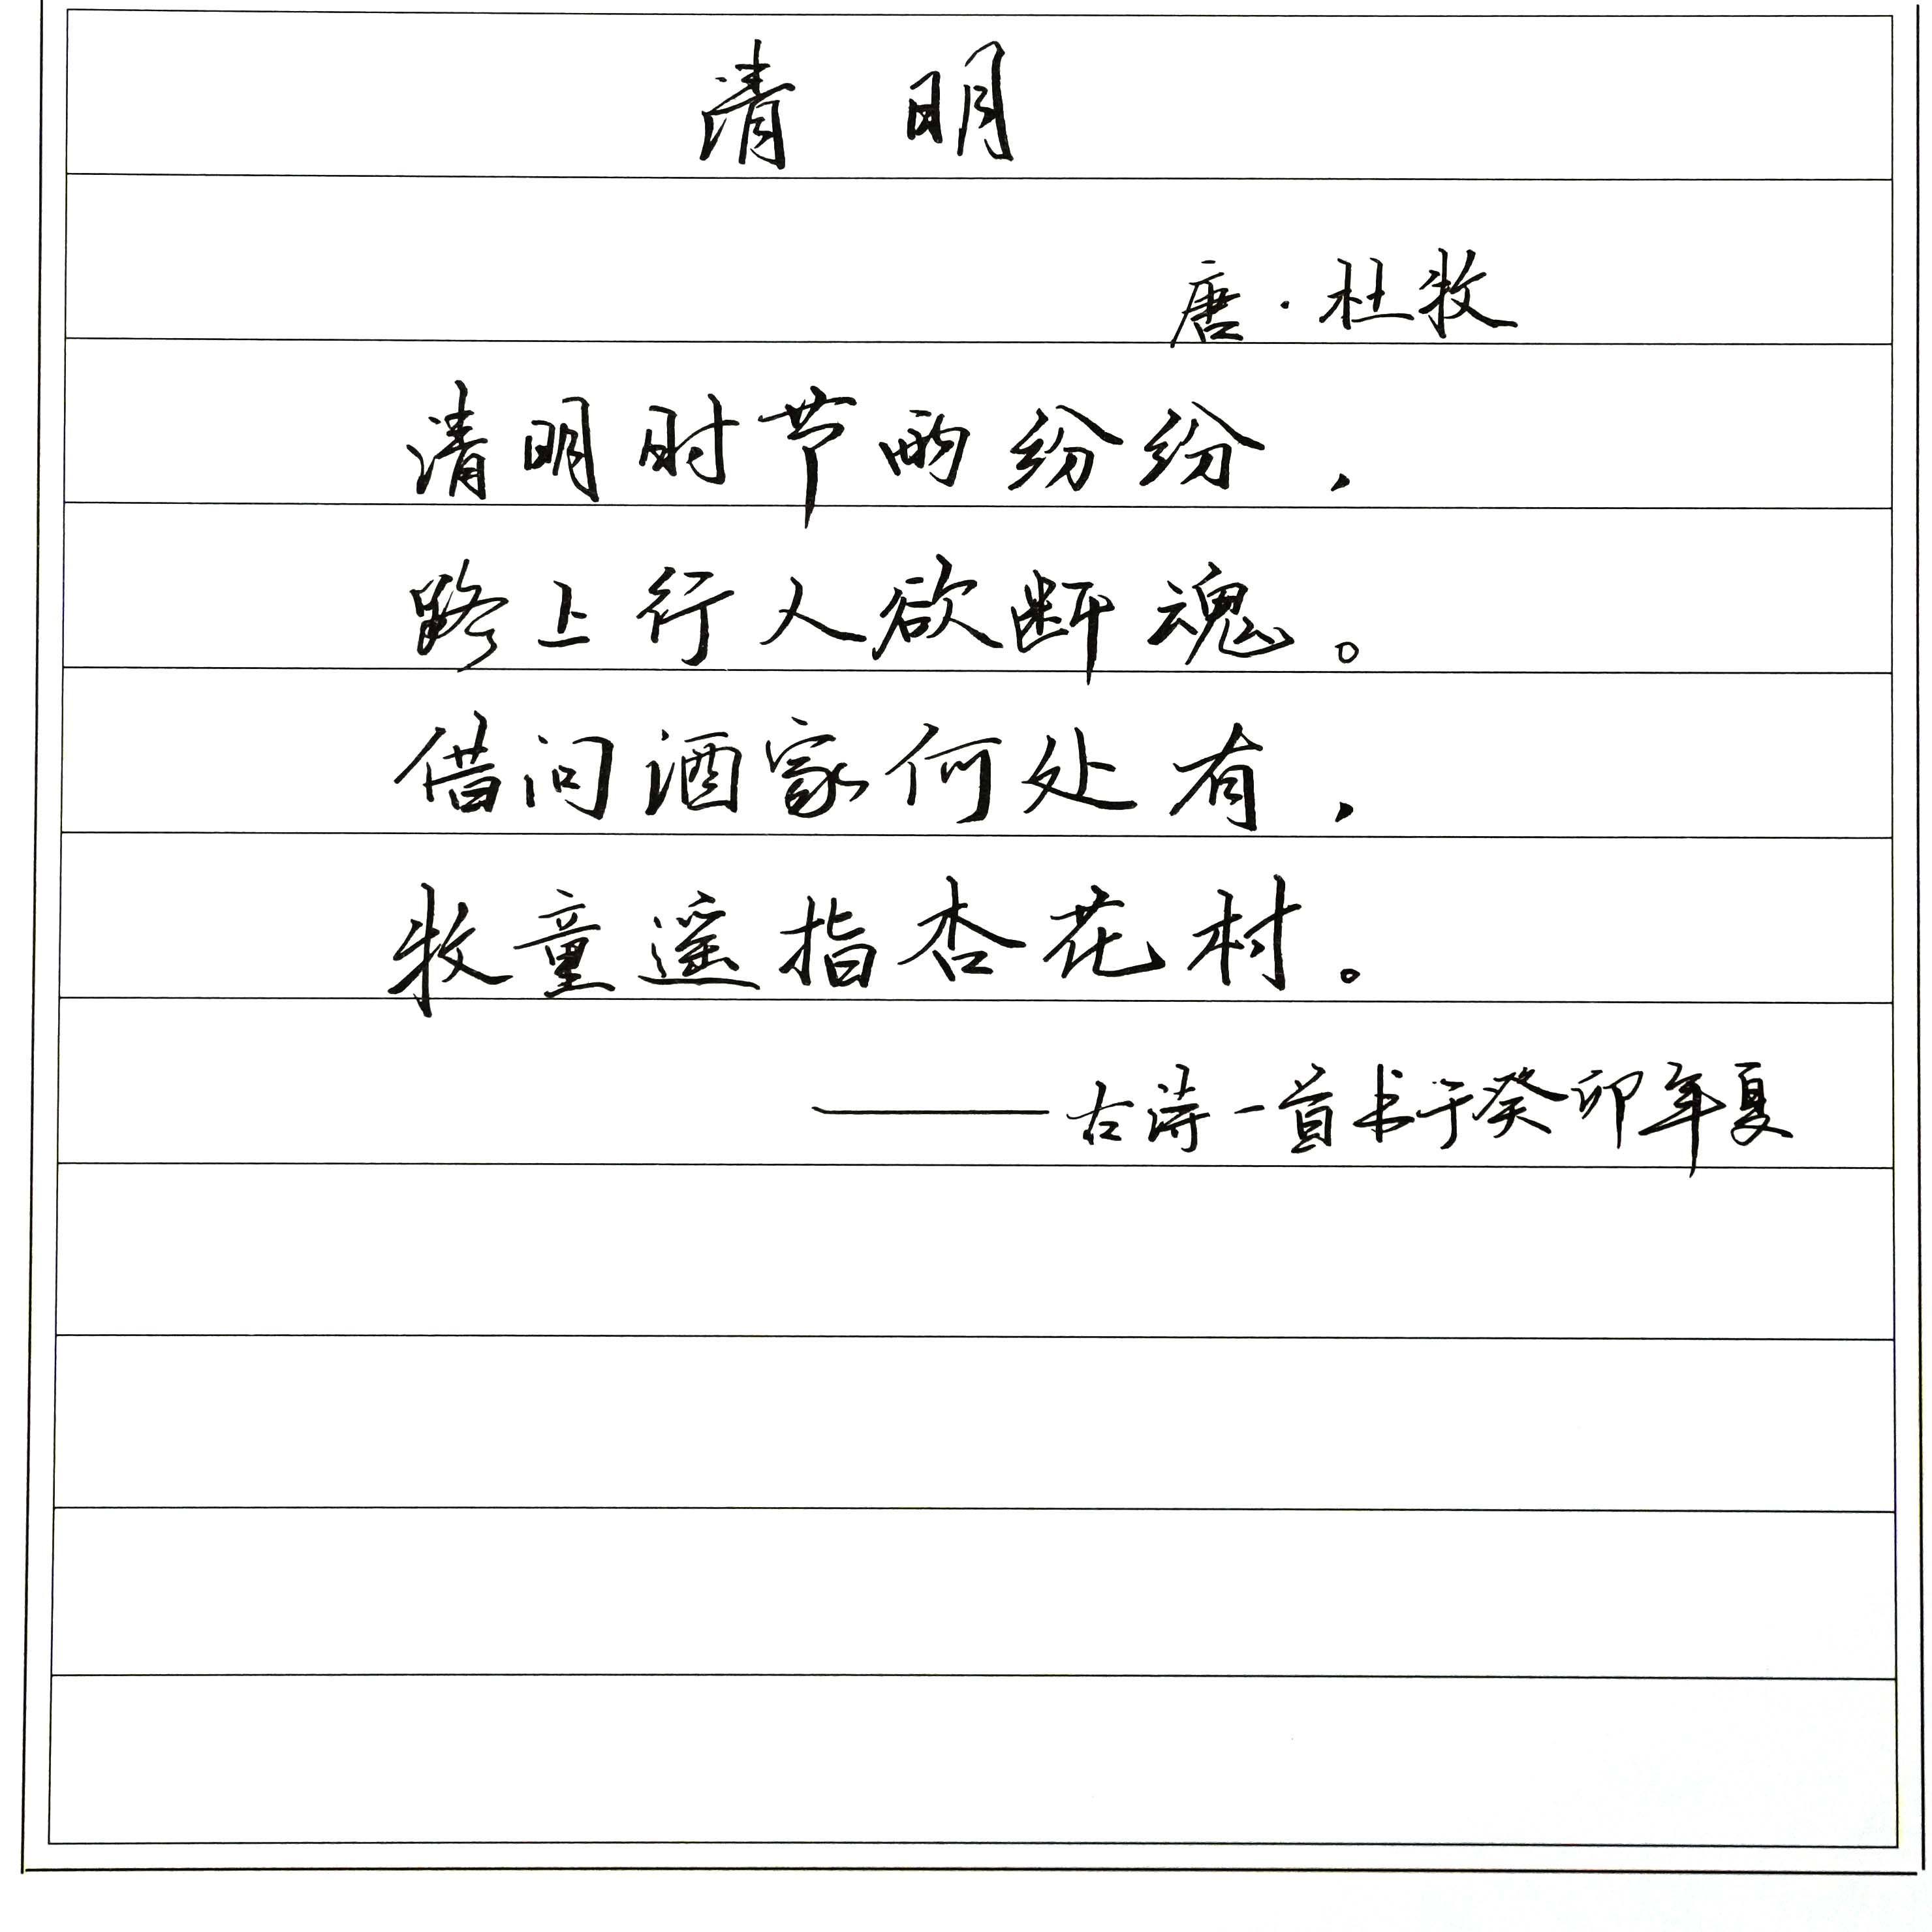 清明
唐·杜牧
清明时节雨纷纷，
路上行人欲断魂。
借问酒家何处有，
牧童遥指杏花村。
——古诗一首书于癸卯年夏